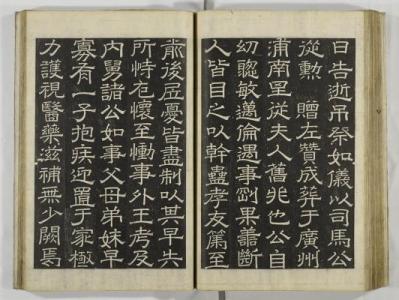 日告逝吊祭如儀以司馬公
從勲　贈左贊成葬于廣州
浦南星從夫人舊兆也公自
幼聰敏邁倫遇事剛果善斷
人皆目之以幹蠱孝友篤至
前後居憂皆盡制以其早失
所恃在懷至慟事外王考及
內舅諸公如事父母弟妹早
寡有一子抱疾迎置于家極
力護視醫藥滋補無少闕焉